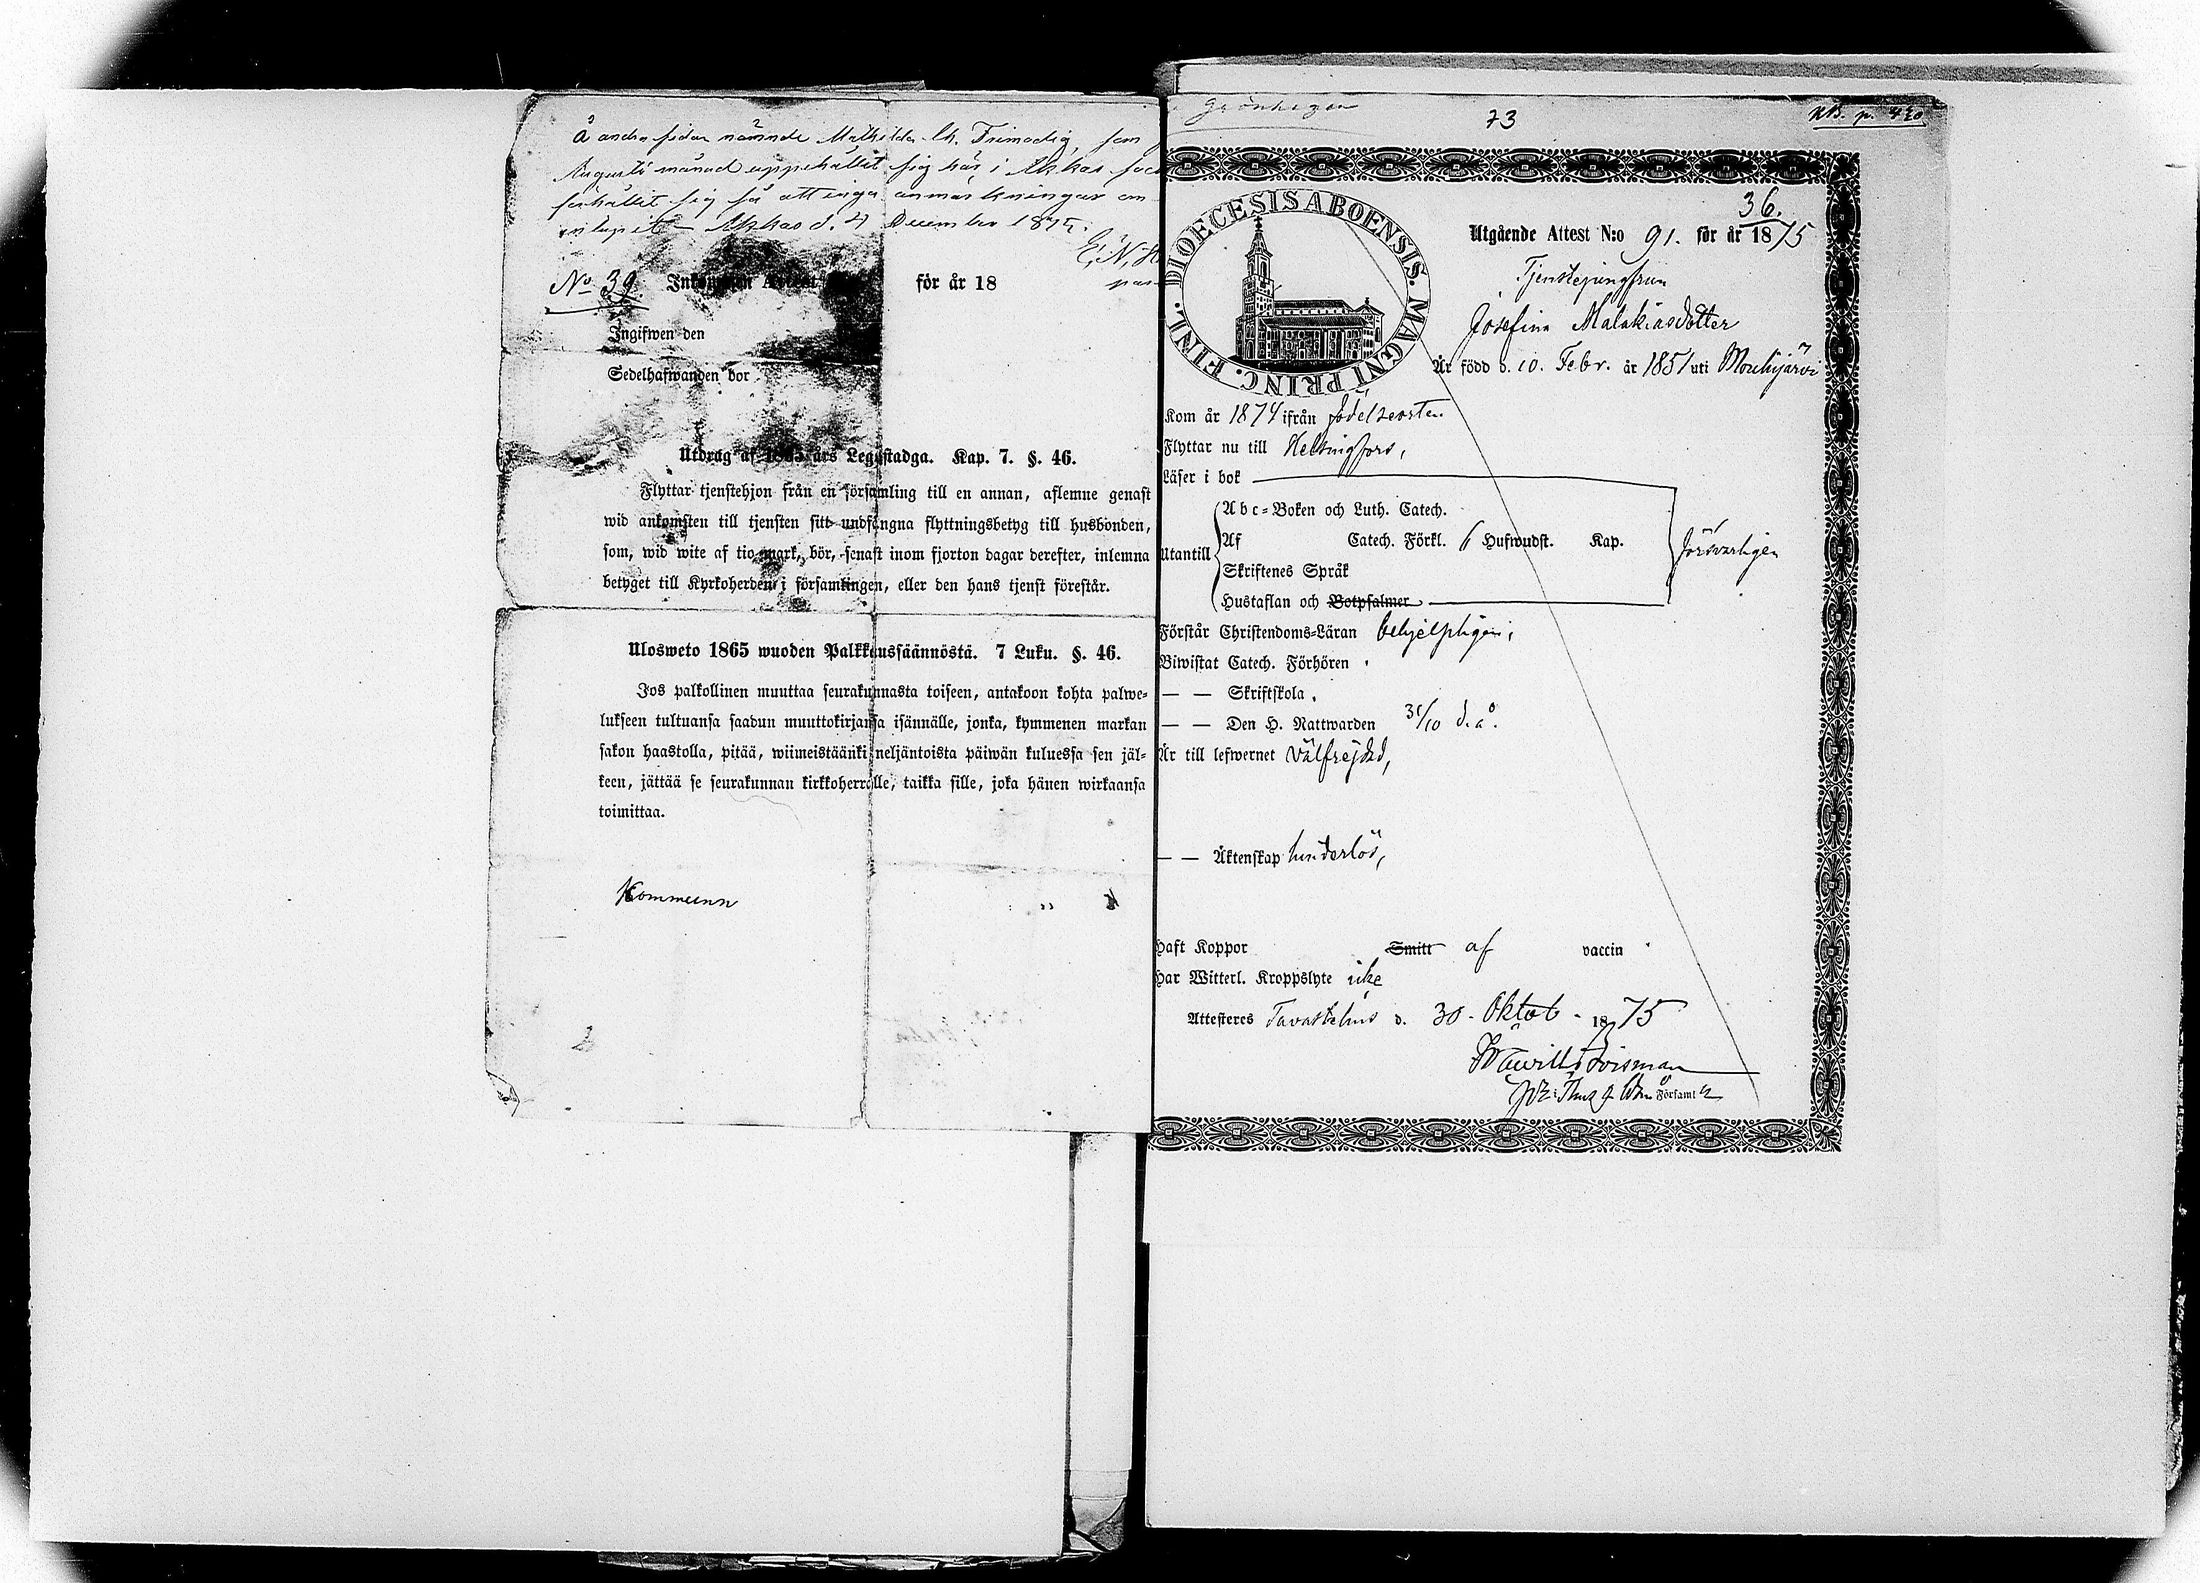 å andra sidan nämnde Mathilda Ch. Frimodig, som
Augusti månad uppehållit sig här i Akkas
förhållit sig så att inga anmärkningar
inlupit Akkas d. 4 December 1875.
E. N.
No 39. Inkommen Attest för år 18
Ingifwen den
Sedelhafwanden bor
Utdrag af 1865 års Legostadga. Kap. 7. §. 46.
Flyttar tjenstehjon från en församling till en annan, aflemne genast
wid ankomsten till tjensten sitt undfångna flyttningsbetyg till husbonden,
som, wid wite af tio mark, bör, senast inom fjorton dagar derefter, inlemna
betyget till Kyrkoherden i församlingen, eller den hans tjenst förestår.
Ulosweto 1865 wuoden Palkkaussäännöstä. 7 Luku. §. 46.
Jos palkollinen muuttaa seurakunnasta toiseen, antakoon kohta palwe-
lukseen tultuansa saadun muuttokirjansa isännälle, jonka, kymmenen markan
sakon haastolla, pitää, wiimeistäänki neljäntoista päiwän kuluessa sen jäl-
keen, jättää se seurakunnan kirkkoherralle, taikka sille, joka hänen wirkaansa
toimittaa.
Kommunn
73
KB. p. 420
DIOECESIS ABOENSIS. MAGNI PRINC. FINL.
36.
Utgående Attest N:o 91. för år 1875
Tjenstepingfrun
Josefina Malakiasdotter
Är född d. 10. Febr. år 1851 uti Mouhijärvi
Kom år 1874 ifrån födelseorten
Flyttar nu till Helsingfors,
Läser i bok
Abc-Boken och Luth. Catech.
Utantill Af Catech. Förkl. 6 Hufwudst. Kap. försvarligen
Skriftenes Språk
Hustaflan och Botpsalmer
Förstår Christendoms-Läran behjelpligen;
Biwistat Catech. Förhören
— — Skriftskola.
— — Den H. Nattwarden 31/10 d. å.
Är till lefwernet välfrejdad,
— — Äktenskap hinderlös,
Haft Koppor Smitt af vaccin
Har Witterl. Kroppslyte icke
Attesteres Tavastehus d. 30. Oktob. 1875
Församl